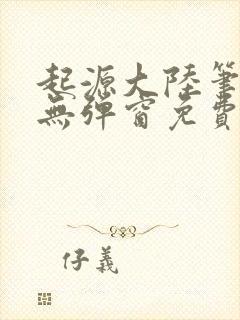 起源大陸筆
無彈窗免費
仔義